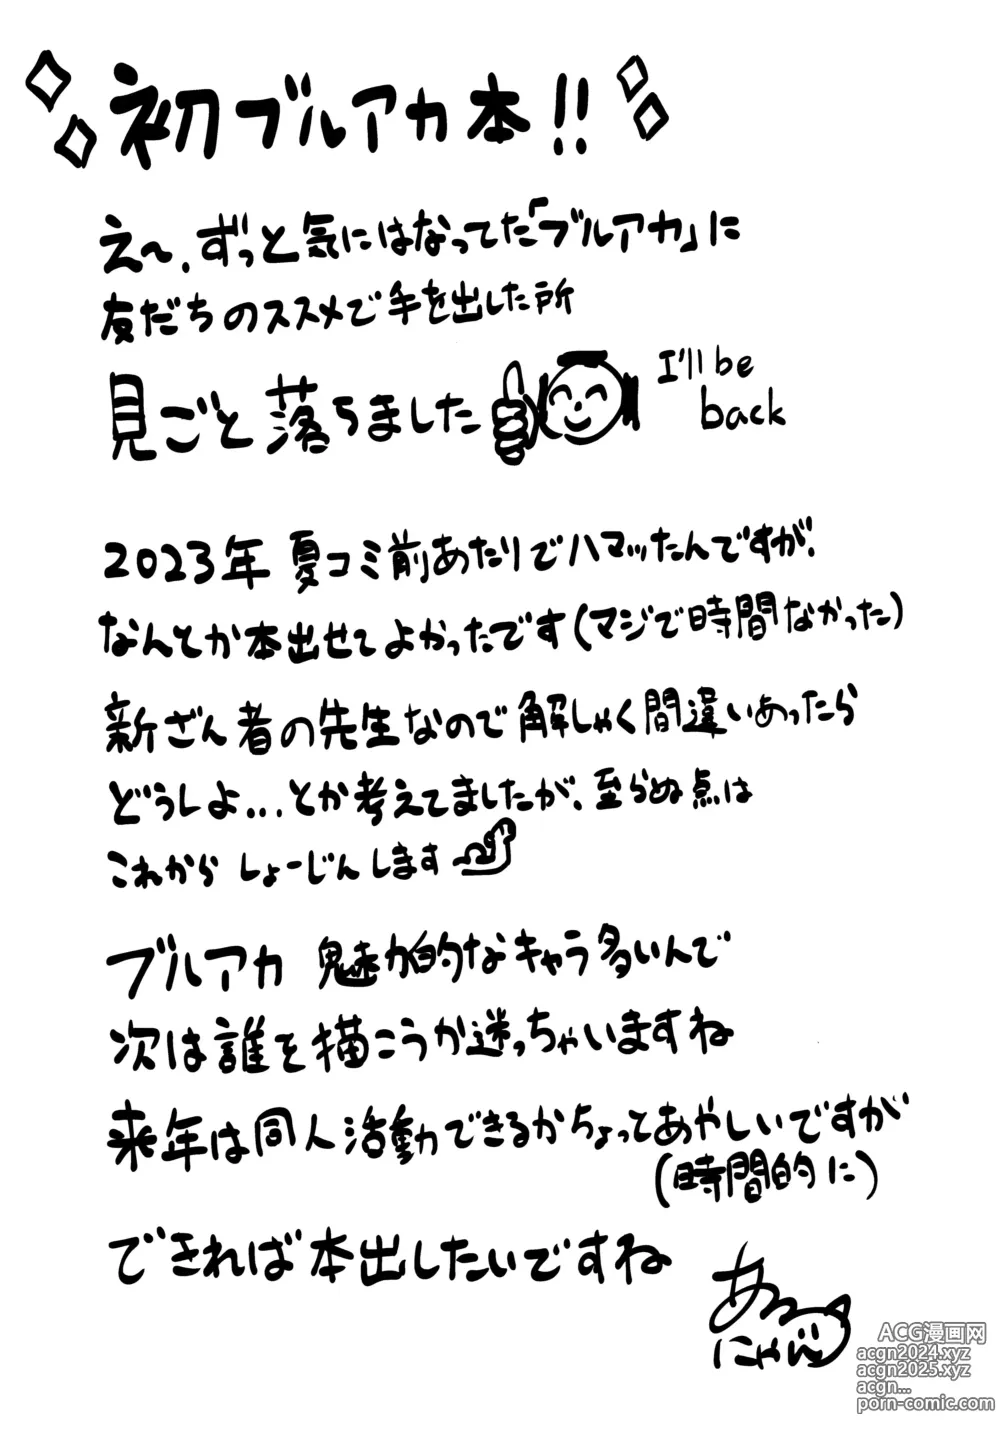 初ブルアカ本!!
え〜、ずっと気にはなってた「ブルアカ」に
友だちのススメで手を出した所
見ごと落ちました
I'll be
back
2023年 夏コミ前あたりでハマッたんですが、
なんとか本出せてよかったです(マジで時間なかった)
新ざん者の先生なので解しゃく間違いあったら
どうしよ...とか考えてましたが、至らぬ点は
これから しょーじんします
ブルアカ 魅力的なキャラ多いんで
次は誰を描こうか迷っちゃいますね
来年は同人活動できるかちょってあやしいですが
(時間的に)
できれば本出したいですね
あっ
にゃん
ACG漫画网
acgn2024.xyz
acgn2025.xyz
acgn...
porn-comic.com